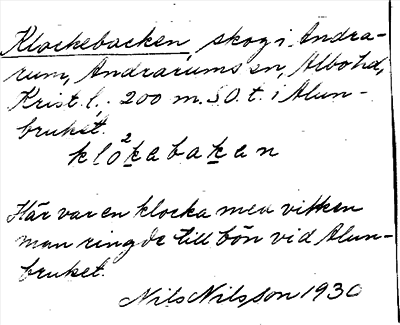 Klockebacken, skog i Andra-
rum, Andrarums sn, Albo hd,
Krist. l. 200 m. S.O. t. i Alun-
bruket.
klo²kabakan
Här var en klocka med vilken
man ringde till bön vid Alun-
bruket.
Nils Nilsson 1930